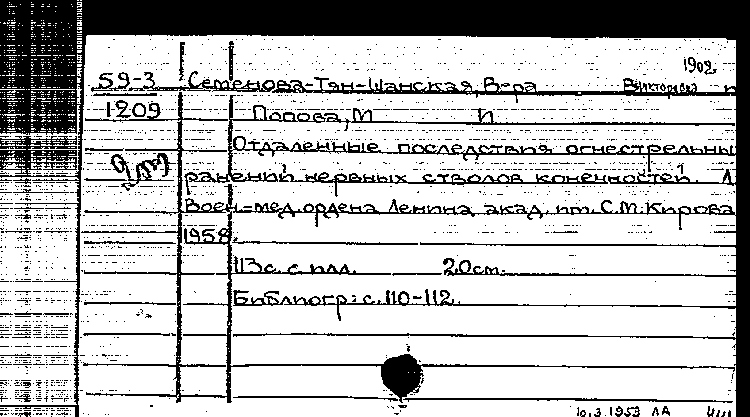 1902
59-3 Семенова-Тян-Шанская, Вера Викторовна
1209 Попова, М И
Отдаленные последствия огнестрельны
ранений нервных стволов конечностей. Л
Воен-мед. ордена Ленина акад. им. С.М. Кирова
1958.
113с. с илл. 20см.
Библиогр: с. 110-112.
10.3.1953 ЛА